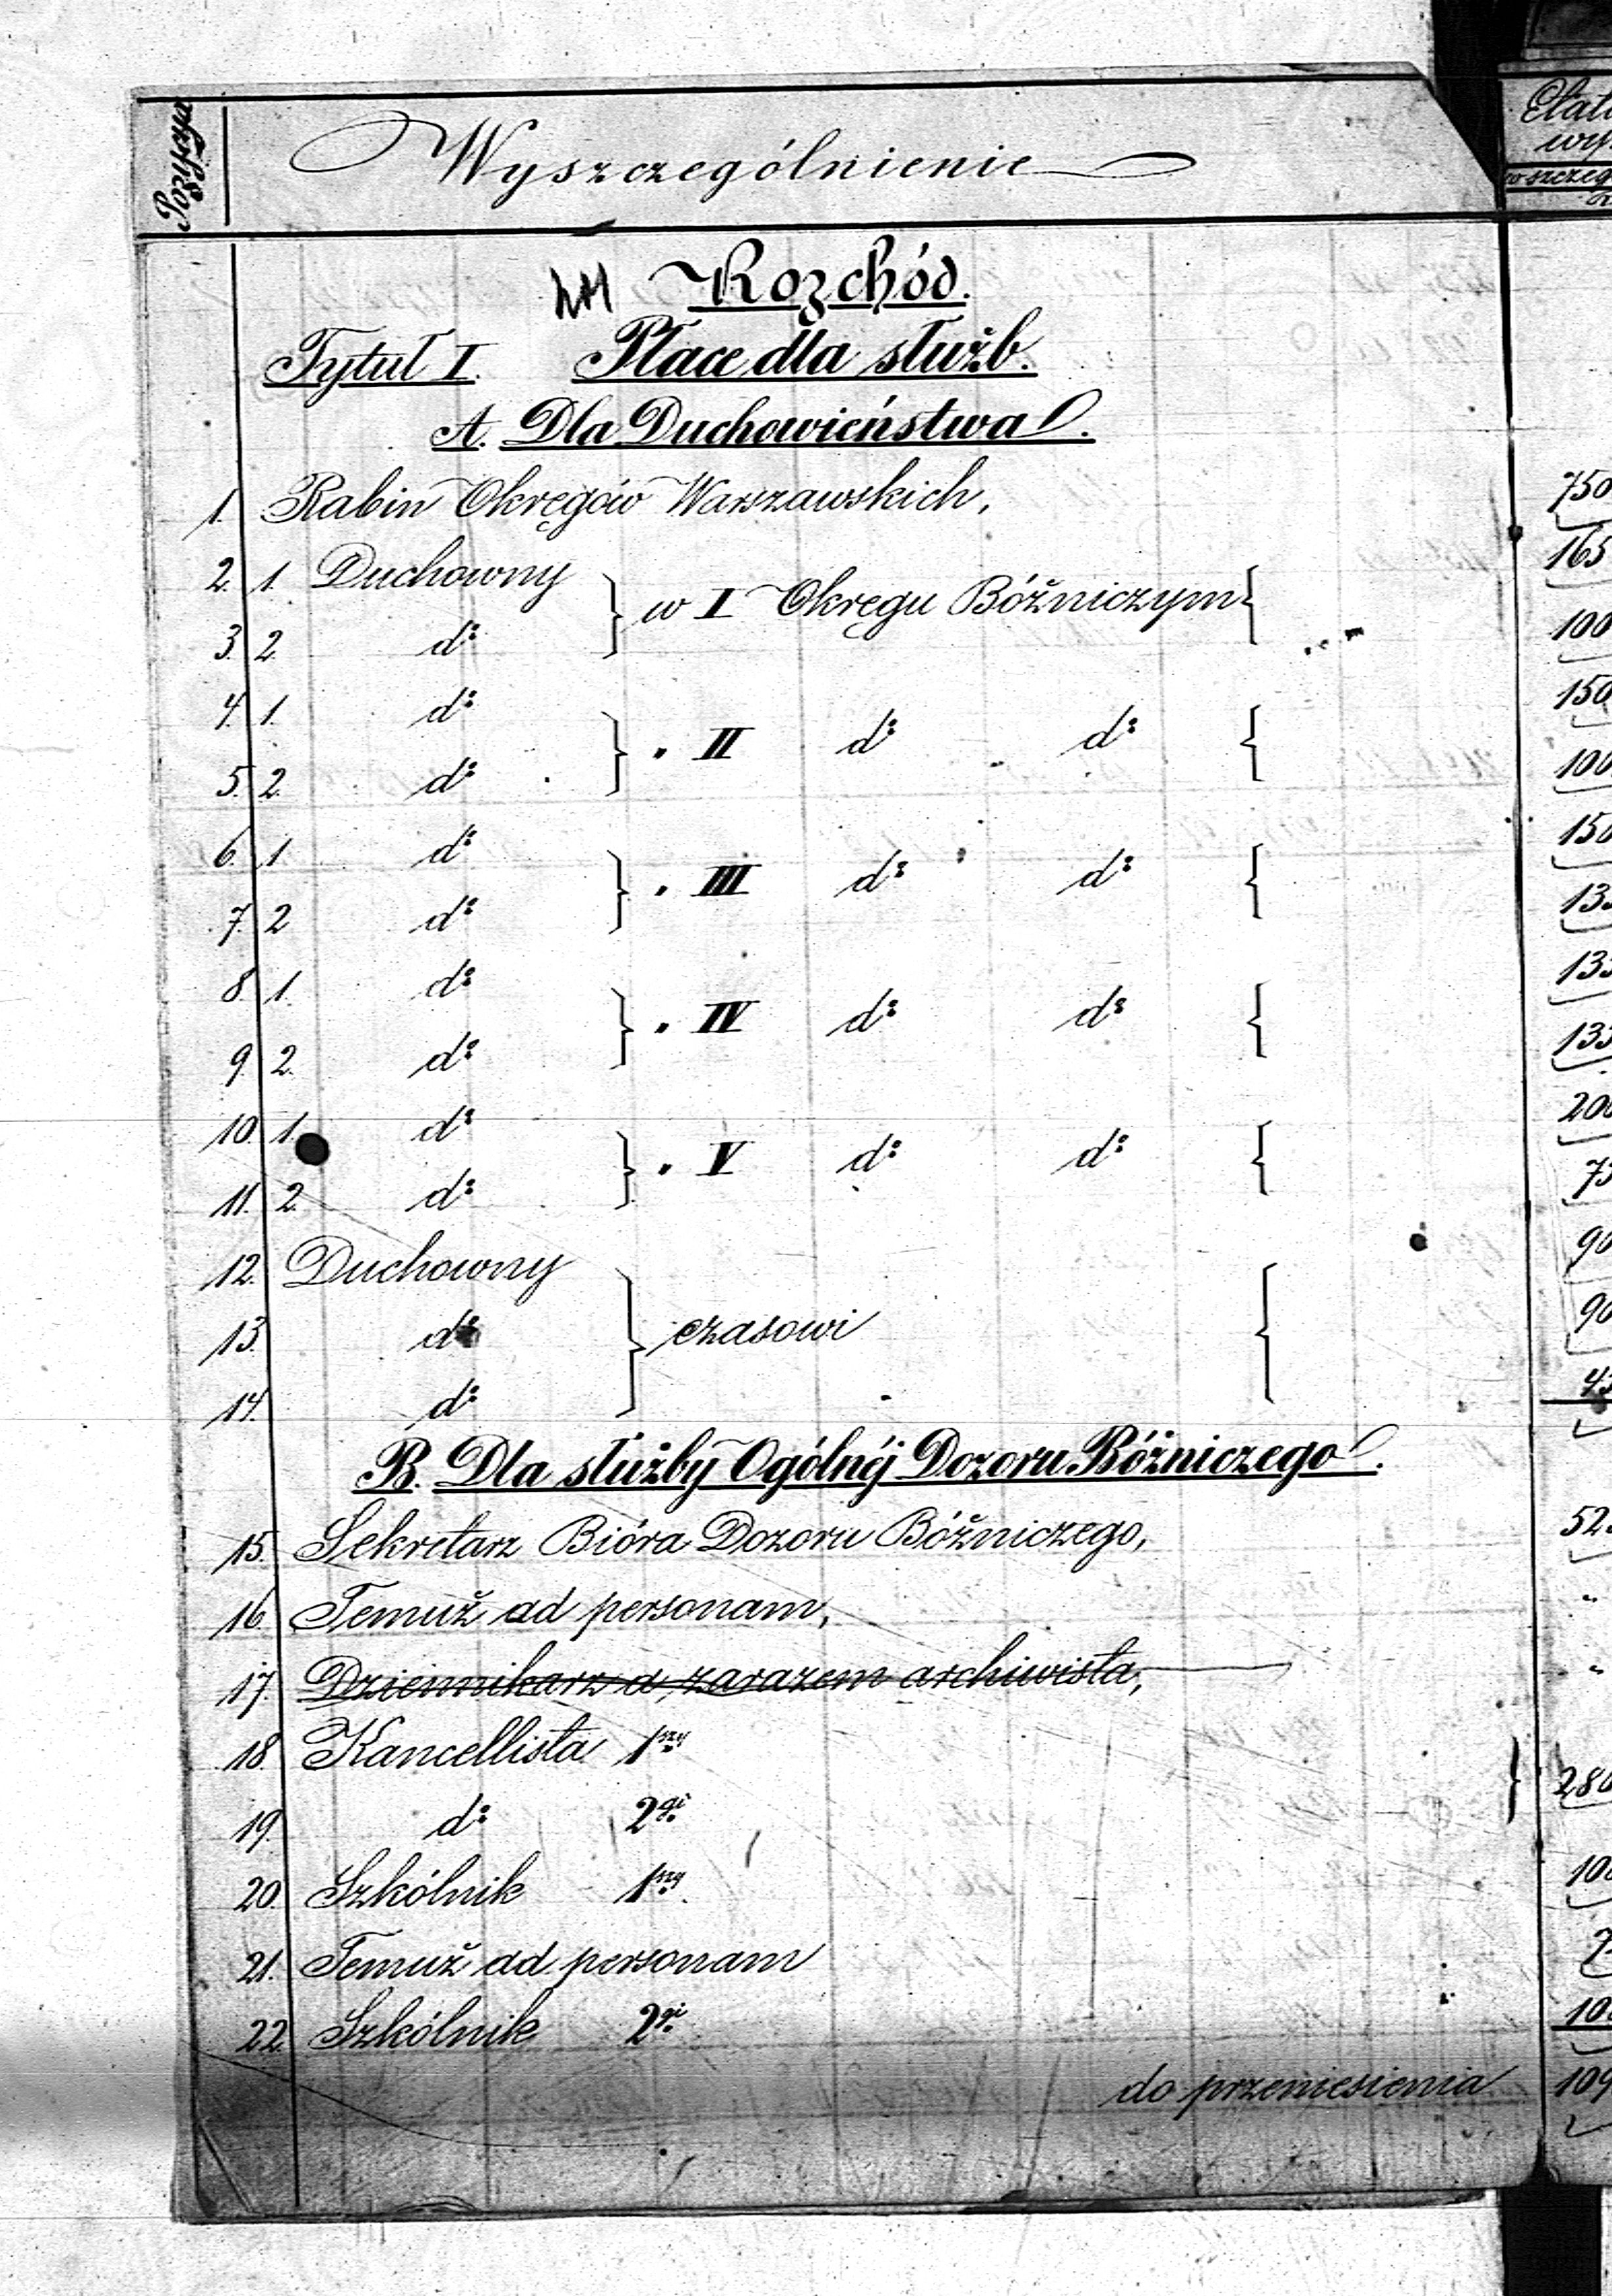 Pozycya
Wyszczególnienie
Rozchód.
Tytuł I. Płace dla służb.
A. Dla Duchowieństwa.
1. Rabin Okręgów Warszawskich, 750
2. 1. Duchowny 165
w I Okręgu Bóżniczym
3. 2 d: 100
4. 1. d: 150
" II d: d:
5. 2. d: 100
6. 1 d: 150
" III d: d:
7. 2 d: 13
8. 1. d: 13
" IV d: d:
9. 2. d: 133
10. 1. d: 200
" V d: d:
11. 2. d: 75
12. Duchowny 90
13. d: czasowi 90
14. d: 45
B. Dla służby Ogólnéj Dozoru Bóżniczego.
15. Sekretarz Bióra Dozoru Bóżniczego, 52
16. Temuż ad personam, "
17. Dziennikarz a zarazem archiwista, "
18. Kancellista 1szy
280
19. d: 2gi
20. Szkólnik 1szy. 10
21. Temuż ad personam 7
22. Szkólnik 2gi 10
do przeniesienia 109